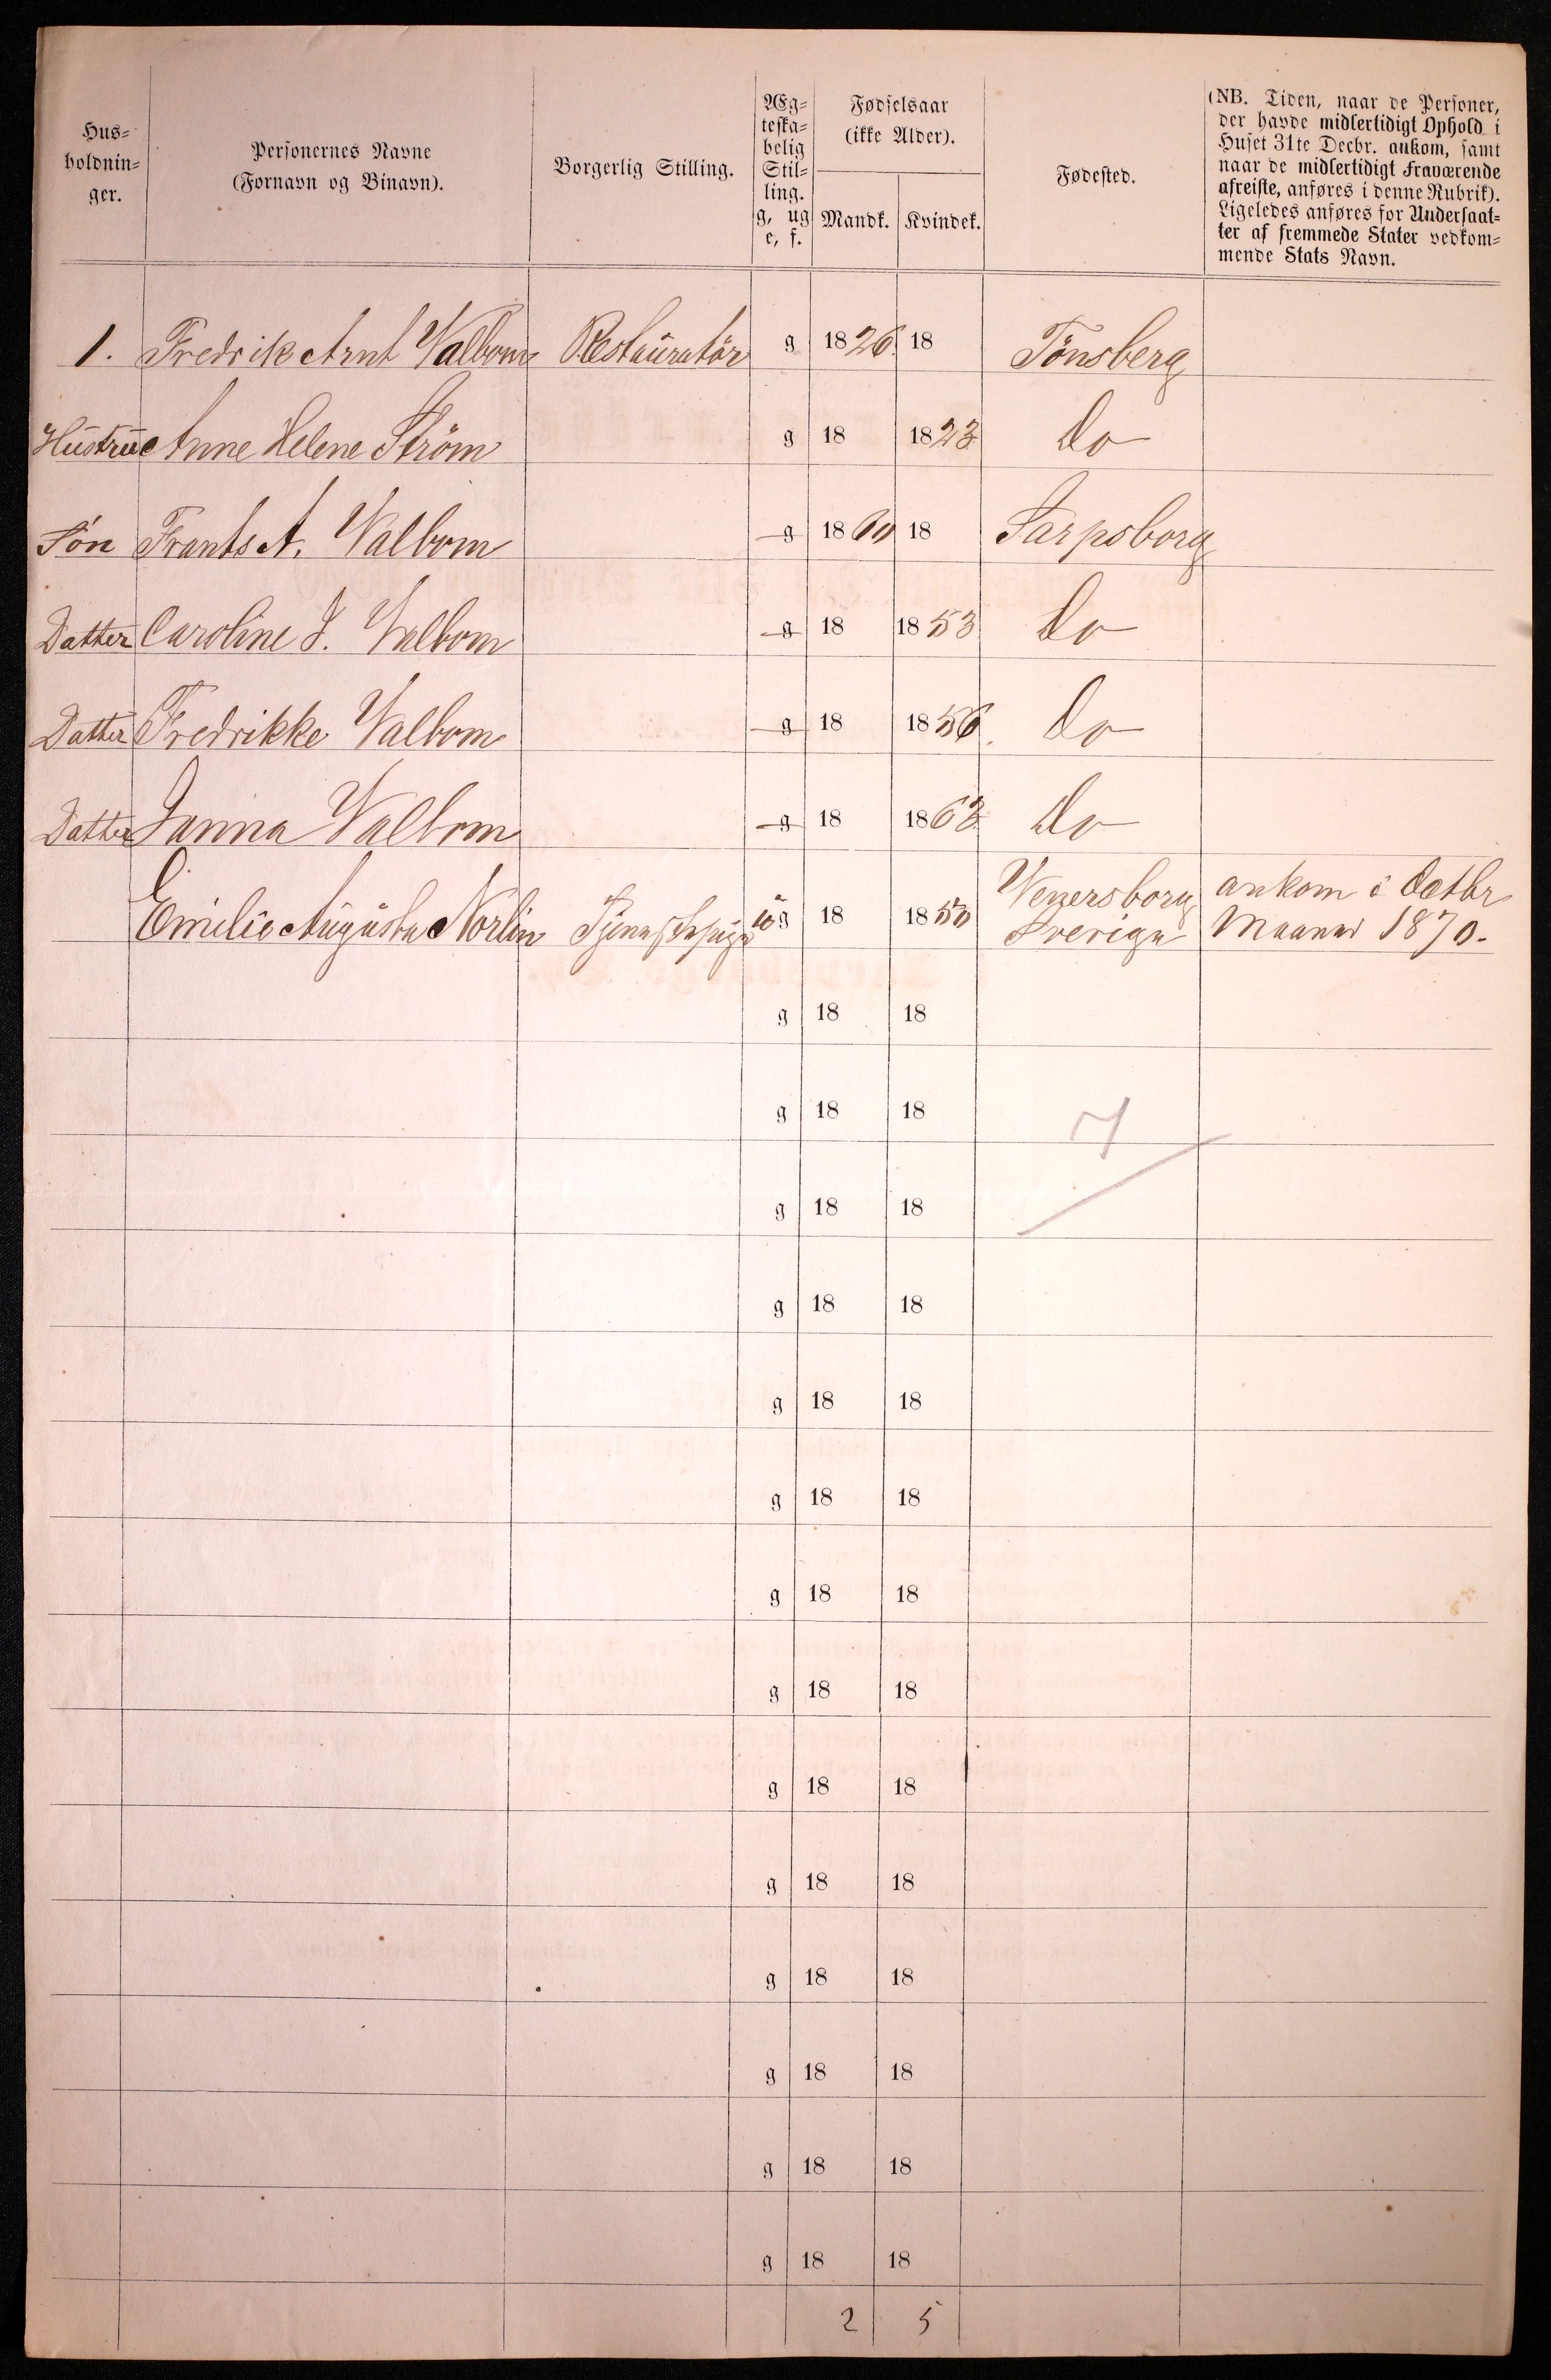 Hus-
holdnin-
ger.
Personernes Navne
(Fornavn og Binavn).
Borgerlig Stilling.
Æg-
teska-
belig
Stil-
ling.
g, ug
e, f.
Fødselsaar
(ikke Alder).
Mandk. Kvindek.
Fødested.
(NB. Tiden, naar de Personer,
der havde midlertidigt Ophold i
Huset 31te Decbr. ankom, samt
naar de midlertidigt Fraværende
afreiste, anføres i denne Rubrik).
Ligeledes anføres for Undersaat-
ter af fremmede Stater vedkom-
mende Stats Navn.
1. Fredrik Arnt Walbom Restauratör g 1826 18 Tönsberg
Hustrue Anne Helene Ström g 18 1823 Do
Sön Frants A. Walbom g 1860 18 Sarpsborg
Datter Caroline J. Walbom g 18 1853 Do
Datter Fredrikke Walbom g 18 1856 Do
Datter Janna Walbom g 18 1863 Do
Emilie Augusta Norlin Tjenestepige ug 18 1850 Wenersborg Sverige ankom i Octbr Maaned 1870.
g 18 18
g 18 18 7
g 18 18
g 18 18
g 18 18
g 18 18
g 18 18
g 18 18
g 18 18
g 18 18
g 18 18
g 18 18
g 18 18
g 18 18
2 5